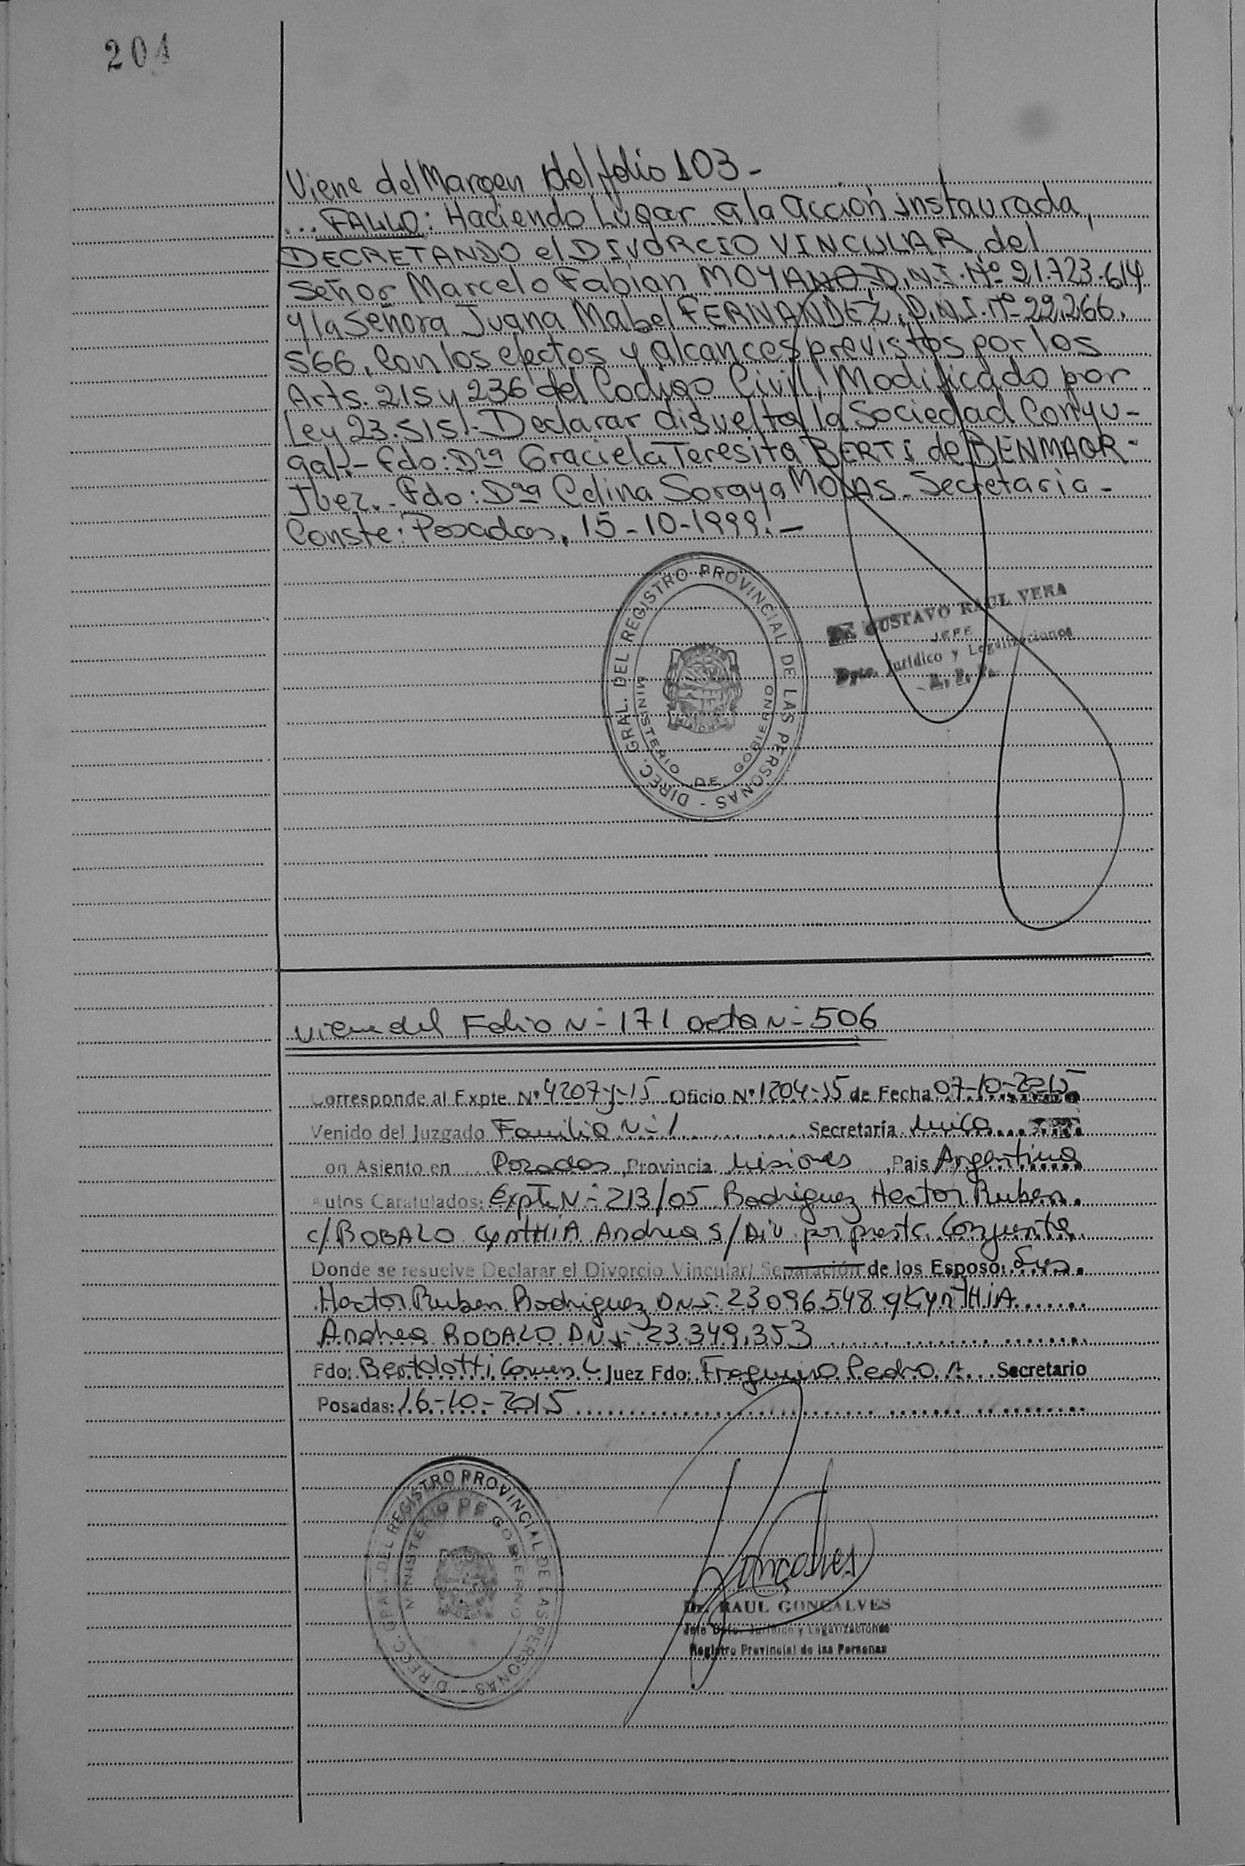 204
Viene del Margen del folio 103 -
... FALLO: Haciendo Lugar a la acción instaurada,
DECRETANDO el DIVORCIO VINCULAR del
Señor Marcelo Fabian MOYANO, D.N.I. Nº 21.723.614
y la Señora Juana Mabel FERNANDEZ, D.N.I. Nº 22.266.
566, Con los efectos y alcances previstos por los
Arts. 215 y 236 del Codigo Civil, Modificado por
Ley 23.515!- Declarar disuelta la Sociedad Conyu-
gal!- Fdo: Dra Graciela Teresita BERTI de BENMAOR -
Juez.- Fdo: Dra Celina Soraya MOLAS - Secretaria -
Conste: Posadas, 15-10-1999!-
DIREC. GRAL. DEL REGISTRO PROVINCIAL DE LAS PERSONAS -
MINISTERIO DE GOBIERNO
Dr. GUSTAVO RAUL VERA
JEFE
Dpto. Jurídico y Legalizaciones
R. P. P.
Viene del Folio N- 171 acta N- 506
Corresponde al Expte. Nº 4207-y-15 Oficio Nº 1204-15 de Fecha 07-10-2015
Venido del Juzgado Familia N- 1 Secretaría Unica
on Asiento en Posadas Provincia Misiones Pais Argentina
Autos Caratulados: Expte N- 213/05 Rodriguez Hector Ruben
c/ BOBALO CyntHiA Andrea S/ Div por presta. Conjunta
Donde se resuelve Declarar el Divorcio Vincular/ Separación de los Esposo: Sres.
Hector Ruben Rodriguez DNI- 23096548 y CyntHiA
Andrea BOBALO DNI- 23.349.353
Fdo: Bertolotti Carmen C Juez Fdo: Fragueiro Pedro A. Secretario
Posadas: 16-10-2015
DIRECC. GRAL. DEL REGISTRO PROVINCIAL DE LAS PERSONAS -
MINISTERIO DE GOBIERNO
Goncalves
Dr. RAUL GONCALVES
Jefe Dpto. Jurídico y Legalizaciones
Registro Provincial de las Personas